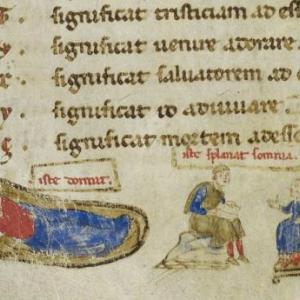 significat tristiciam ad es
significat uenire adorare
significat saluatorem ad
y . significat id adiuuare .
significat mortem adesse
iste dormit .
iste splanat somnia .